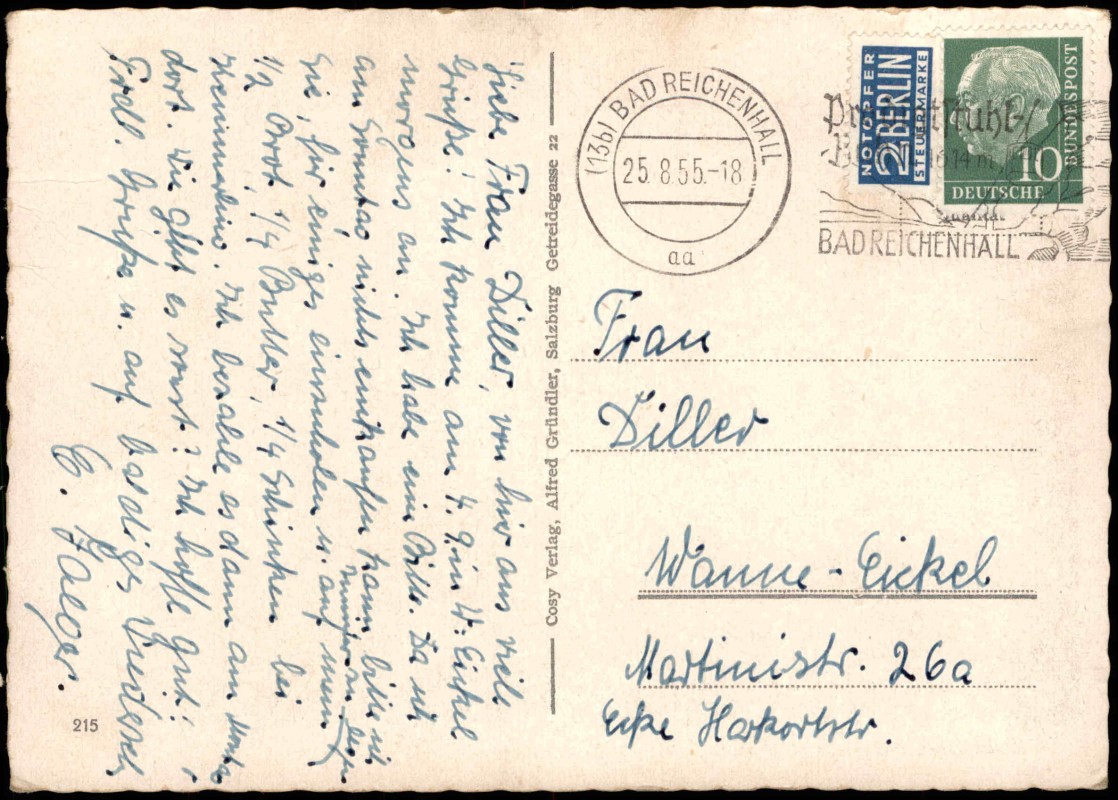 Liebe Frau Diller, von hier aus viele
Grüße! Ich komme am 4. 9. in W.-Eickel
morgens an. Ich habe eine Bitte. Da ich
am Sonntag nichts einkaufen kann, bitte ich
Sie, für einiges einzuholen u. auf meinen
1/2 Brot, 1/4 Butter, 1/4 Schinken bei
Ich bezahle es dann am
dort. Wie geht es sonst? Ich hoffe gut!
Frdl. Grüße u. auf baldiges Wiedersehen
E. Jäger.
215
Cosy Verlag, Alfred Gründler, Salzburg Getreidegasse 22
(13b) BAD REICHENHALL
25.8.55.-18
aa
NOTOPFER
2 BERLIN
STEUERMARKE
10
DEUTSCHE
BUNDESPOST
BAD REICHENHALL
Frau
Diller
Wanne-Eickel
Martinistr. 26a
Ecke Harkortstr.